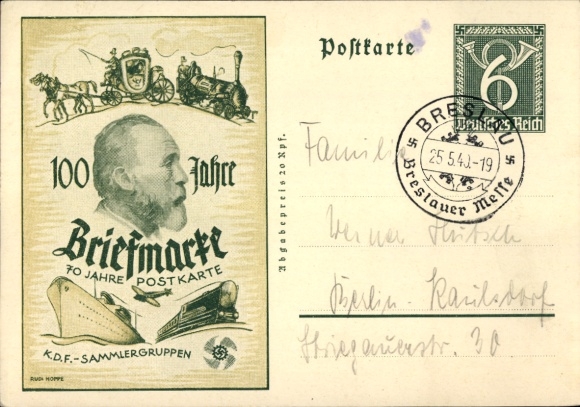 100 Jahre
Briefmarke
70 JAHRE POSTKARTE
K.D.F.-SAMMLERGRUPPEN
RUDI HOPPE
Abgabepreis 20 Rpf.
Postkarte
6
Deutsches Reich
BRESLAU
25.5.40.-19
Breslauer Messe
Familie
Werner
Berlin-Kaulsdorf
Striegauerstr. 30